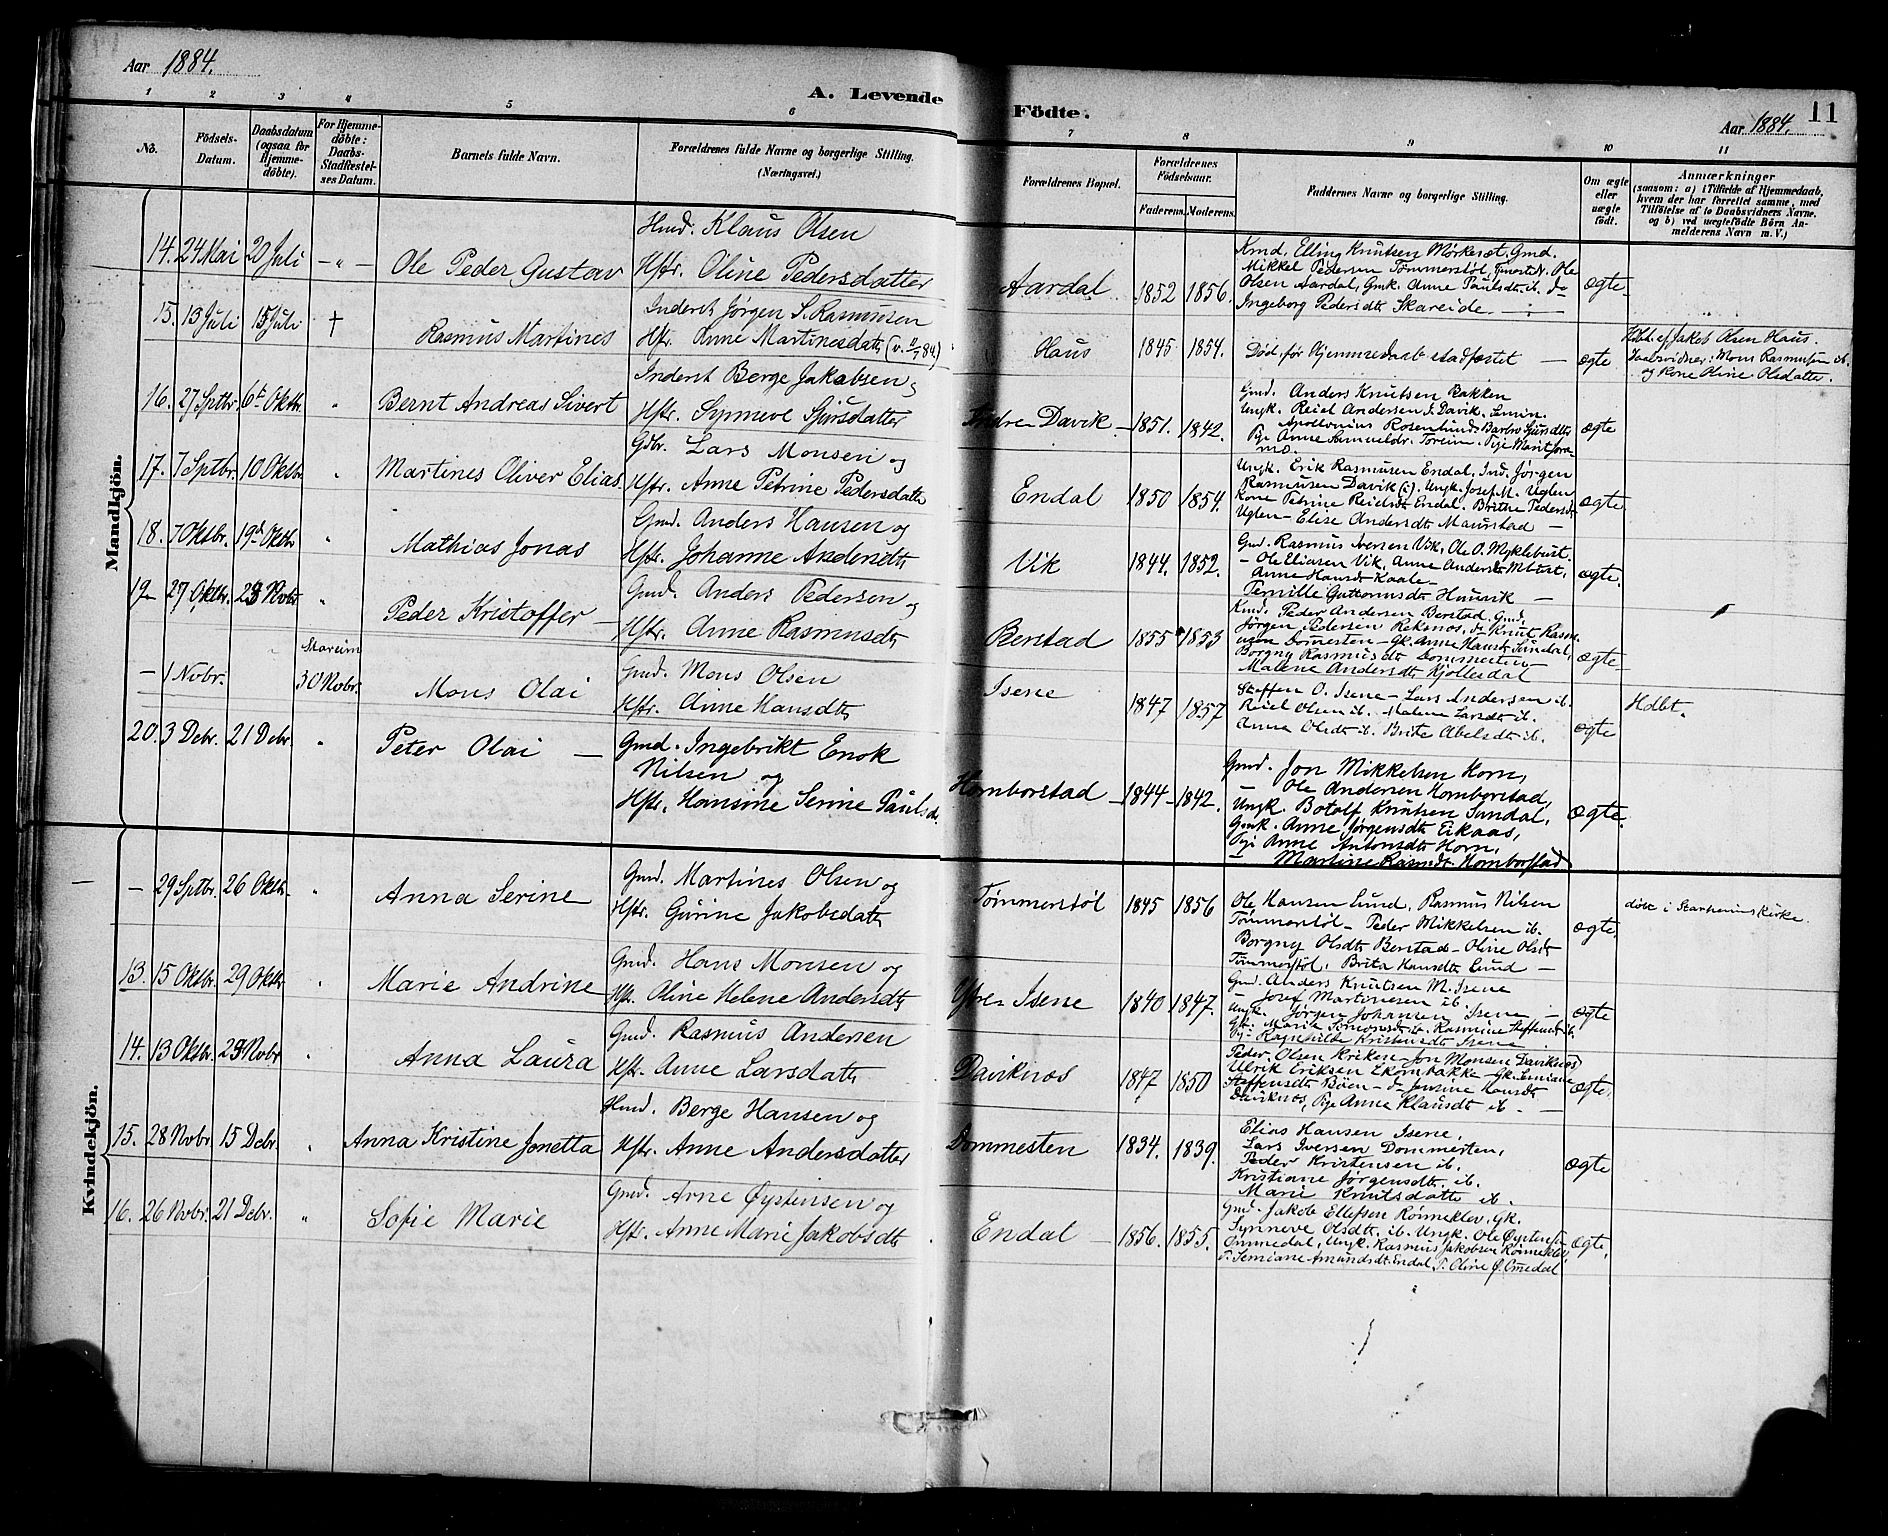 Aar 1884.
A. Levende Födte.
Aar 1884.
11
1 2 3 4 5 6 7 8 9 10 11
No.
Födsels-Datum.
Daabsdatum (ogsaa for Hjemme-döbte).
For Hjemme-döbte: Daabs-Stadfæstel-ses Datum.
Barnets fulde Navn.
Forældrenes fulde Navne og borgerlige Stilling.
(Næringsvei.)
Forældrenes Bopæl.
Forældrenes Födselsaar.
Faderens. Moderens.
Faddernes Navne og borgerlige Stilling.
Om ægte eller uægte födt.
Anmærkninger
(saasom: a) i Tilfælde af Hjemmedaab, hvem der har forrettet samme, med Tilföielse af to Daabsvidners Navne, og b) ved uægtefödte Börn Anmelderens Navn m. V.)
Mandkjön.
14. 24 Mai 20 Juli – „ – Ole Peder Gustav
Hmd. Klaus Olsen
Hstr. Oline Pedersdatter
Aardal 1852 1856.
Kmd. Elling Knutsen Mörkesæt, Gmd.
Mikkel Pedersen Tømmerstøl, Ole
Olsen Aardal, Gmk. Anne Paulsdtr ib. do
Ingeborg Pedersdtr Skareide.
ægte
15. 13 Juli 15 Juli † Rasmus Martines
Inderst Jørgen S. Rasmussen
Hstr. Anne Martinesdatr
Haus 1845 1854.
Död, før Hjemmedaab stadfæstet
ægte
Hdbt. af Jakob Olsen Haus.
Daabsvidner: Mons Rasmussen ib.
og Kone Oline Olsdatter.
16. 27 Sptbr. 6te Oktbr. „ Bernt Andreas Sivert
Inderst Berge Jakobsen og
Hstr. Synneve Sjursdatter
Indre Davik 1851. 1842.
Gmd. Anders Knutsen Bakken
Ungk. Reiel Andersen I. Davik
Apollonius Rosenlund. Barbro Sjursdtr
Pige Anne Samueldr. Torein. Pige Marit
ægte
17. 7 Sptbr. 10 Oktbr. „ Martines Oliver Elias
Gdbr. Lars Monsen og
Hstr. Anne Petrine Pedersdatr
Endal 1850 1854.
Ungk. Erik Rasmusen Endal, Ind. Jørgen
Rasmusen Davik (i). Ungk. Josef M. Uglen
Kone Petrine Reielsdtr Endal. Brithe Pedersdtr
Uglen – Elise Andersdtr Maurstad –
ægte
18. 7 Oktbr. 19de Oktbr „ Mathias Jonas
Gmd. Anders Hansen og
Hstr. Johanne Andersdtr
Vik 1844. 1852.
Gmd. Rasmus Iversen Vik, Ole O. Myklebust
– Ole Eliasen Vik, Anne Andersdtr Mbust,
Anne Hansdtr Kaale –
Pernille Guttormsdtr Hunvik –
ægte.
19 27 Oktbr. 23 Novbr „ Peder Kristoffer –
Gmd. Anders Pedersen og
Hstr. Anne Rasmusdtr
Berstad 1855 1853
Kmd. Peder Andersen Berstad, Gmd.
Jørgen Pedersen Reksnos, do Knut Rasm
usen Dommesten – Gk. Anne Hansdtr Sundal,
Borgny Rasmusdtr Dommesten
Malene Andersdtr Hjöllesdal
ægte
– 1 Nobr. Mareim 30 Nobr. Mons Olai
Gmd. Mons Olsen
Hstr. Anne Hansdtr
Isene 1847 1857
Steffen O. Isene – Lars Andersen ib.
Reiel Olsen ib. Malene Larsdtr ib.
Anna Olsdtr ib. Brite Abelsdtr ib.
ægte
Hdbt.
20. 3 Debr. 21 Debr. „ Peter Olai –
Gmd. Ingebrikt Enok
Nilsen og
Hstr. Hansine Serine Paulsd.
Hornborstad 1844 1842.
Gmd. Jon Mikkelsen Horn,
Ole Andersen Hornborstad,
Ungk. Botolf Knutsen Sundal,
Gmk. Anne Jørgensdtr Eikaas,
Pige Anne Antonsdtr Horn,
– Martine Rasmdt. Hornborstad
ægte.
Kvindekjön.
– 29 Sptbr. 26 Oktbr. „ Anna Serine
Gmd. Martines Olsen og
Hstr. Gurine Jakobsdatr
Tømmerstøl 1845 1856
Ole Hansen Lund, Rasmus Nilsen
Tømmerstøl – Peder Mikkelsen ib.
Borgny Olsdtr Berstad – Oline Olsdtr
Tømmerstøl. Brita Hansdtr Lund –
ægte.
döbt i Starheims kirke.
13. 15 Oktbr. 29 Oktbr „ Marie Andrine
Gmd. Hans Monsen og
Hstr. Oline Helene Andersdtr
Ytre Isene 1840 1847.
Gmd. Anders Knutsen M. Isene
– Josef Martinesen ib.
Ungk. Jørgen Johansen Isene –
Gk. Maria Simonsdtr ib. Rasmine Steffensdtr ib.
Pige Ragnhilde Kristensdtr Isene
ægte
14. 13 Oktbr. 23 Novbr „ Anna Laura
Gmd. Rasmus Andersen
Hstr. Anne Larsdatr
Daviknos 1847 1850
Peder Olsen Kriken – Jon Monsen Daviknos
Ulrik Eriksen Ekornbakke – Gk. Semiane
Steffensdtr Böen – do Jensine Hansdtr
Daviknos, Pige Anne Klausdtr ib. –
ægte.
15. 28 Novbr 15 Debr. „ Anna Kristine Jonetta
Hmd. Berge Hansen og
Hstr. Anne Andersdatter
Dommesten 1834. 1839.
Elias Hansen Isene,
Lars Iversen Dommesten,
Peder Kristensen ib.
Kristiane Jørgensdtr. ib.
Marie Knutsdatter ib.
ægte
16. 26 Novbr. 21 Debr. „ Sofie Marie
Gmd. Arne Øystensen og
Hstr. Anne Marie Jakobsdtr
Endal 1856. 1855.
Gmd. Jakob Ellefsen Rönneklev, Gk.
Synneve Olsdtr. ib. Ungk. Ole Øystensen
Ommedal, Ungk. Rasmus Jakobsen Rönneklev
P. Semiane Amundsdt. Endal, P. Oline Ø. Omedal
ægte,